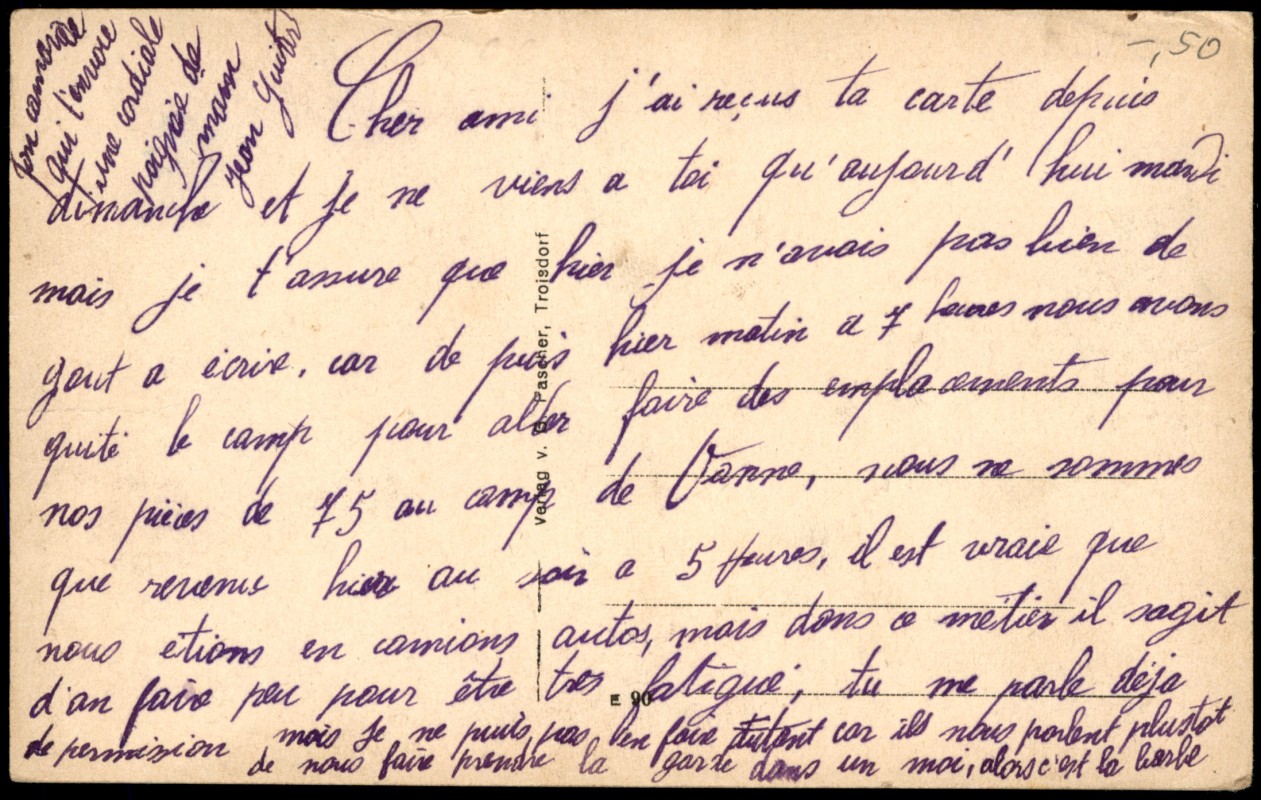 -,50
Cher ami j'ai reçus ta carte depuis
dimanche et je ne viens a toi qu'aujourd'hui mardi
mais je t'assure que hier je n'avais pas bien de
gout a écrire, car de puis hier matin a 7 heures nous avons
quité le camp pour aller faire des emplacements pour
nos pièces de 75 au camp de Vanne, nous ne sommes
que revenu hier au soir a 5 Heures, il est vraie que
nous etions en camions autos, mais dans ce métier il sagit
d'an faire peu pour être tres fatigué, tu me parle déja
de permission mais je ne puis pas en faire autant car ils nous parlent plustot
de nous faire prendre la garde dans un moi, alors c'est la barbe
ton camarade
qui t'envoie
une cordiale
poignée de
main
Jean
Verlag v. Pascher, Troisdorf
E 90